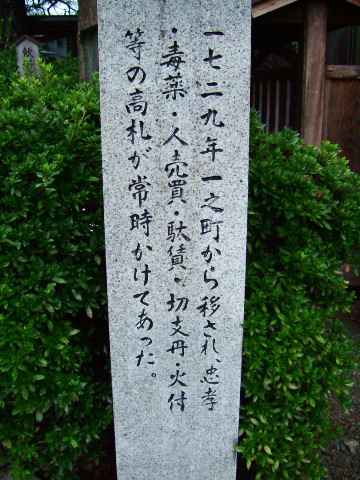 一七二九年一之町から移され、忠孝
・毒薬・人売買・駄賃・切支丹・火付
等の高札が常時かけてあった。